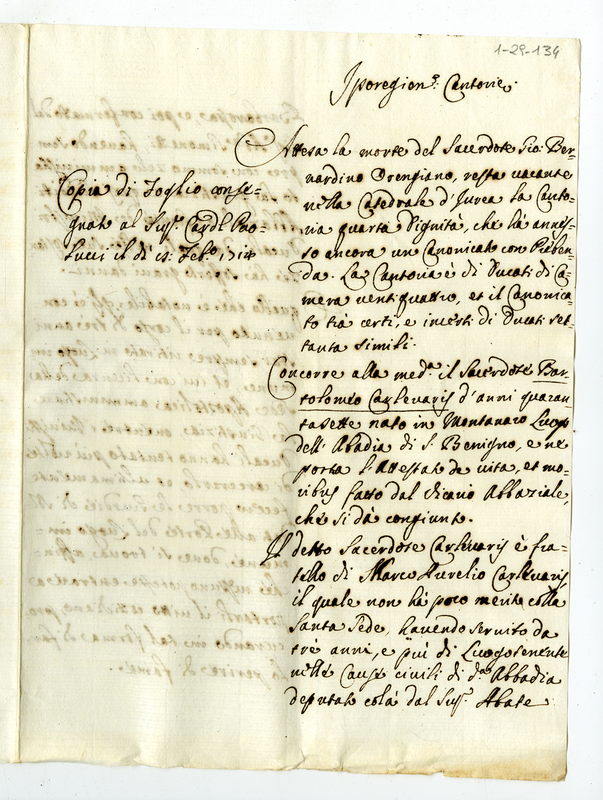 1-29-134
Iporegien.s Cantorie.
Copia di Foglio conse-
gnato al Sig.r Cardl Pao-
lucci il dì 12. Feb.o 1714
Attesa la morte del Sacerdote Gio: Ber-
nardino Drengiano, resta vacante
nella Catedrale d'Ivrea la Canto-
ria quarta Dignità, che hà annes-
so ancora un Canonicato con Preben-
da. La Cantoria è di Ducati di Ca-
mera venti quattro, et il Canonica-
to trà certi, e incerti di Ducati set-
tanta simili.
Concorre alla med.a il Sacerdote Bar-
tolomeo Carlevaris d'anni quaran-
tasette nato in Montanaro Luogo
dell'Abadia di S. Benigno, e ne
porta l'Attestato de vita, et mo-
ribus fatto dal Vicario Abbaziale,
che si dà congiunto.
Il detto Sacerdote Carlevaris è fra-
tello di Marco Aurelio Carlevaris
il quale non hà poco merito colla
Santa Sede, havendo servito da
trè anni, e più di Luogotenente
nelle Cause civili di d.a Abbadia
deputato colà dal Sig.r Abate